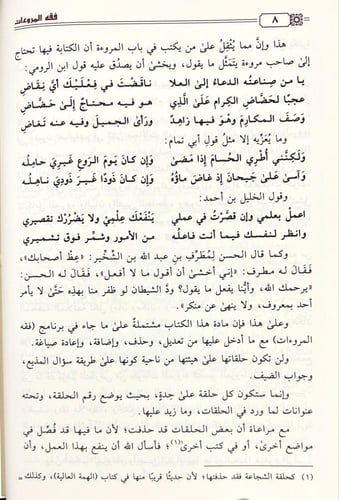 فقه المروءات
٨
هذا وإنَّ مما يُثْقِلُ على من يكتب في باب المروءة أن الكتابة فيها تحتاج
إلى صاحب مروءة يتَمَثَّل ما يقول، ويخشى أن يصدُق عليه قول ابن الرومي:
يا من صناعته الدعاءُ إلى العلا ناقضْتَ في فِعْلَيْكَ أيَّ نِقَاضِ
عجبًا لحَضَّاضِ الكرام عَلَى الَّذِي هو فيه محتاجٌ إلى حَضَّاضِ
وَصَفَ المكارِمَ وهْوَ فيها زاهِدٌ ورَأى الجميلَ وفيه عنه تغَاضِ
وما يُعَزِّيه إلا مثلُ قولِ أبي تمام:
ولكِنَّني أُطْرِي الحُسَامَ إذَا مَضَى وَإِن كَانَ يومَ الرَّوْعِ غَيْرِيَ حامِلُه
وَآسَى عَلَى جَيحَانَ إذْ غاضَ ماؤُهُ وَإِن كانَ ذَودًا غَيرَ ذَودِيَ ناهِلُه
وقول الخليل بن أحمد:
اعملْ بعلمي وإن قصَّرْتُ في عملي يَنْفَعْكَ عِلْمِيْ ولا يَضْرُرْكَ تقصيري
وانظر لنفسك فيما أنت فاعلُه من الأمور وشمِّر فوق تشميري
وكما قال الحسن لِمُطَرِّفِ بنِ عبد الله بن الشِّخِّير: «عِظْ أصحابك»،
فَقَال له مطرف: «إني أخشى أن أقول ما لا أفعل»، فَقَال له الحسن:
«يرحمك الله، وأيُّنا يفعل ما يقول؟ ودَّ الشيطان لو ظفر منا بهذه حتَّى لا يأمر
أحد بمعروف، ولا ينهى عن منكر».
وعلى هذا فإن مادة هذا الكتاب مشتملةٌ على ما جاء في برنامج (فقه
المروءات) مع ما أدخل عليها من تعديل، وحذف، وإضافة، وإعادة صياغة.
ولن تكون حلقاتها على هيئتها من ناحية كونها على طريقة سؤال المذيع،
وجواب الضيف.
وإنما ستكون كل حلقة على جدةٍ، بحيث يوضع رقم الحلقة، وتحته
عنوانات لما ورد في الحلقات، وما زيد عليها.
مع مراعاة أن بعض الحلقات قد حذفت؛ لأن ما فيها قد فُصِّل في
مواضع أخرى، أو في كتب أخرى(١)؛ فأسأل الله أن ينفع بهذا العمل، وأن
(١) كحلقة الشجاعة فقد حذفتها؛ لأن حديثًا قريبًا منها في كتاب (الهمة العالية)، وكذلك =